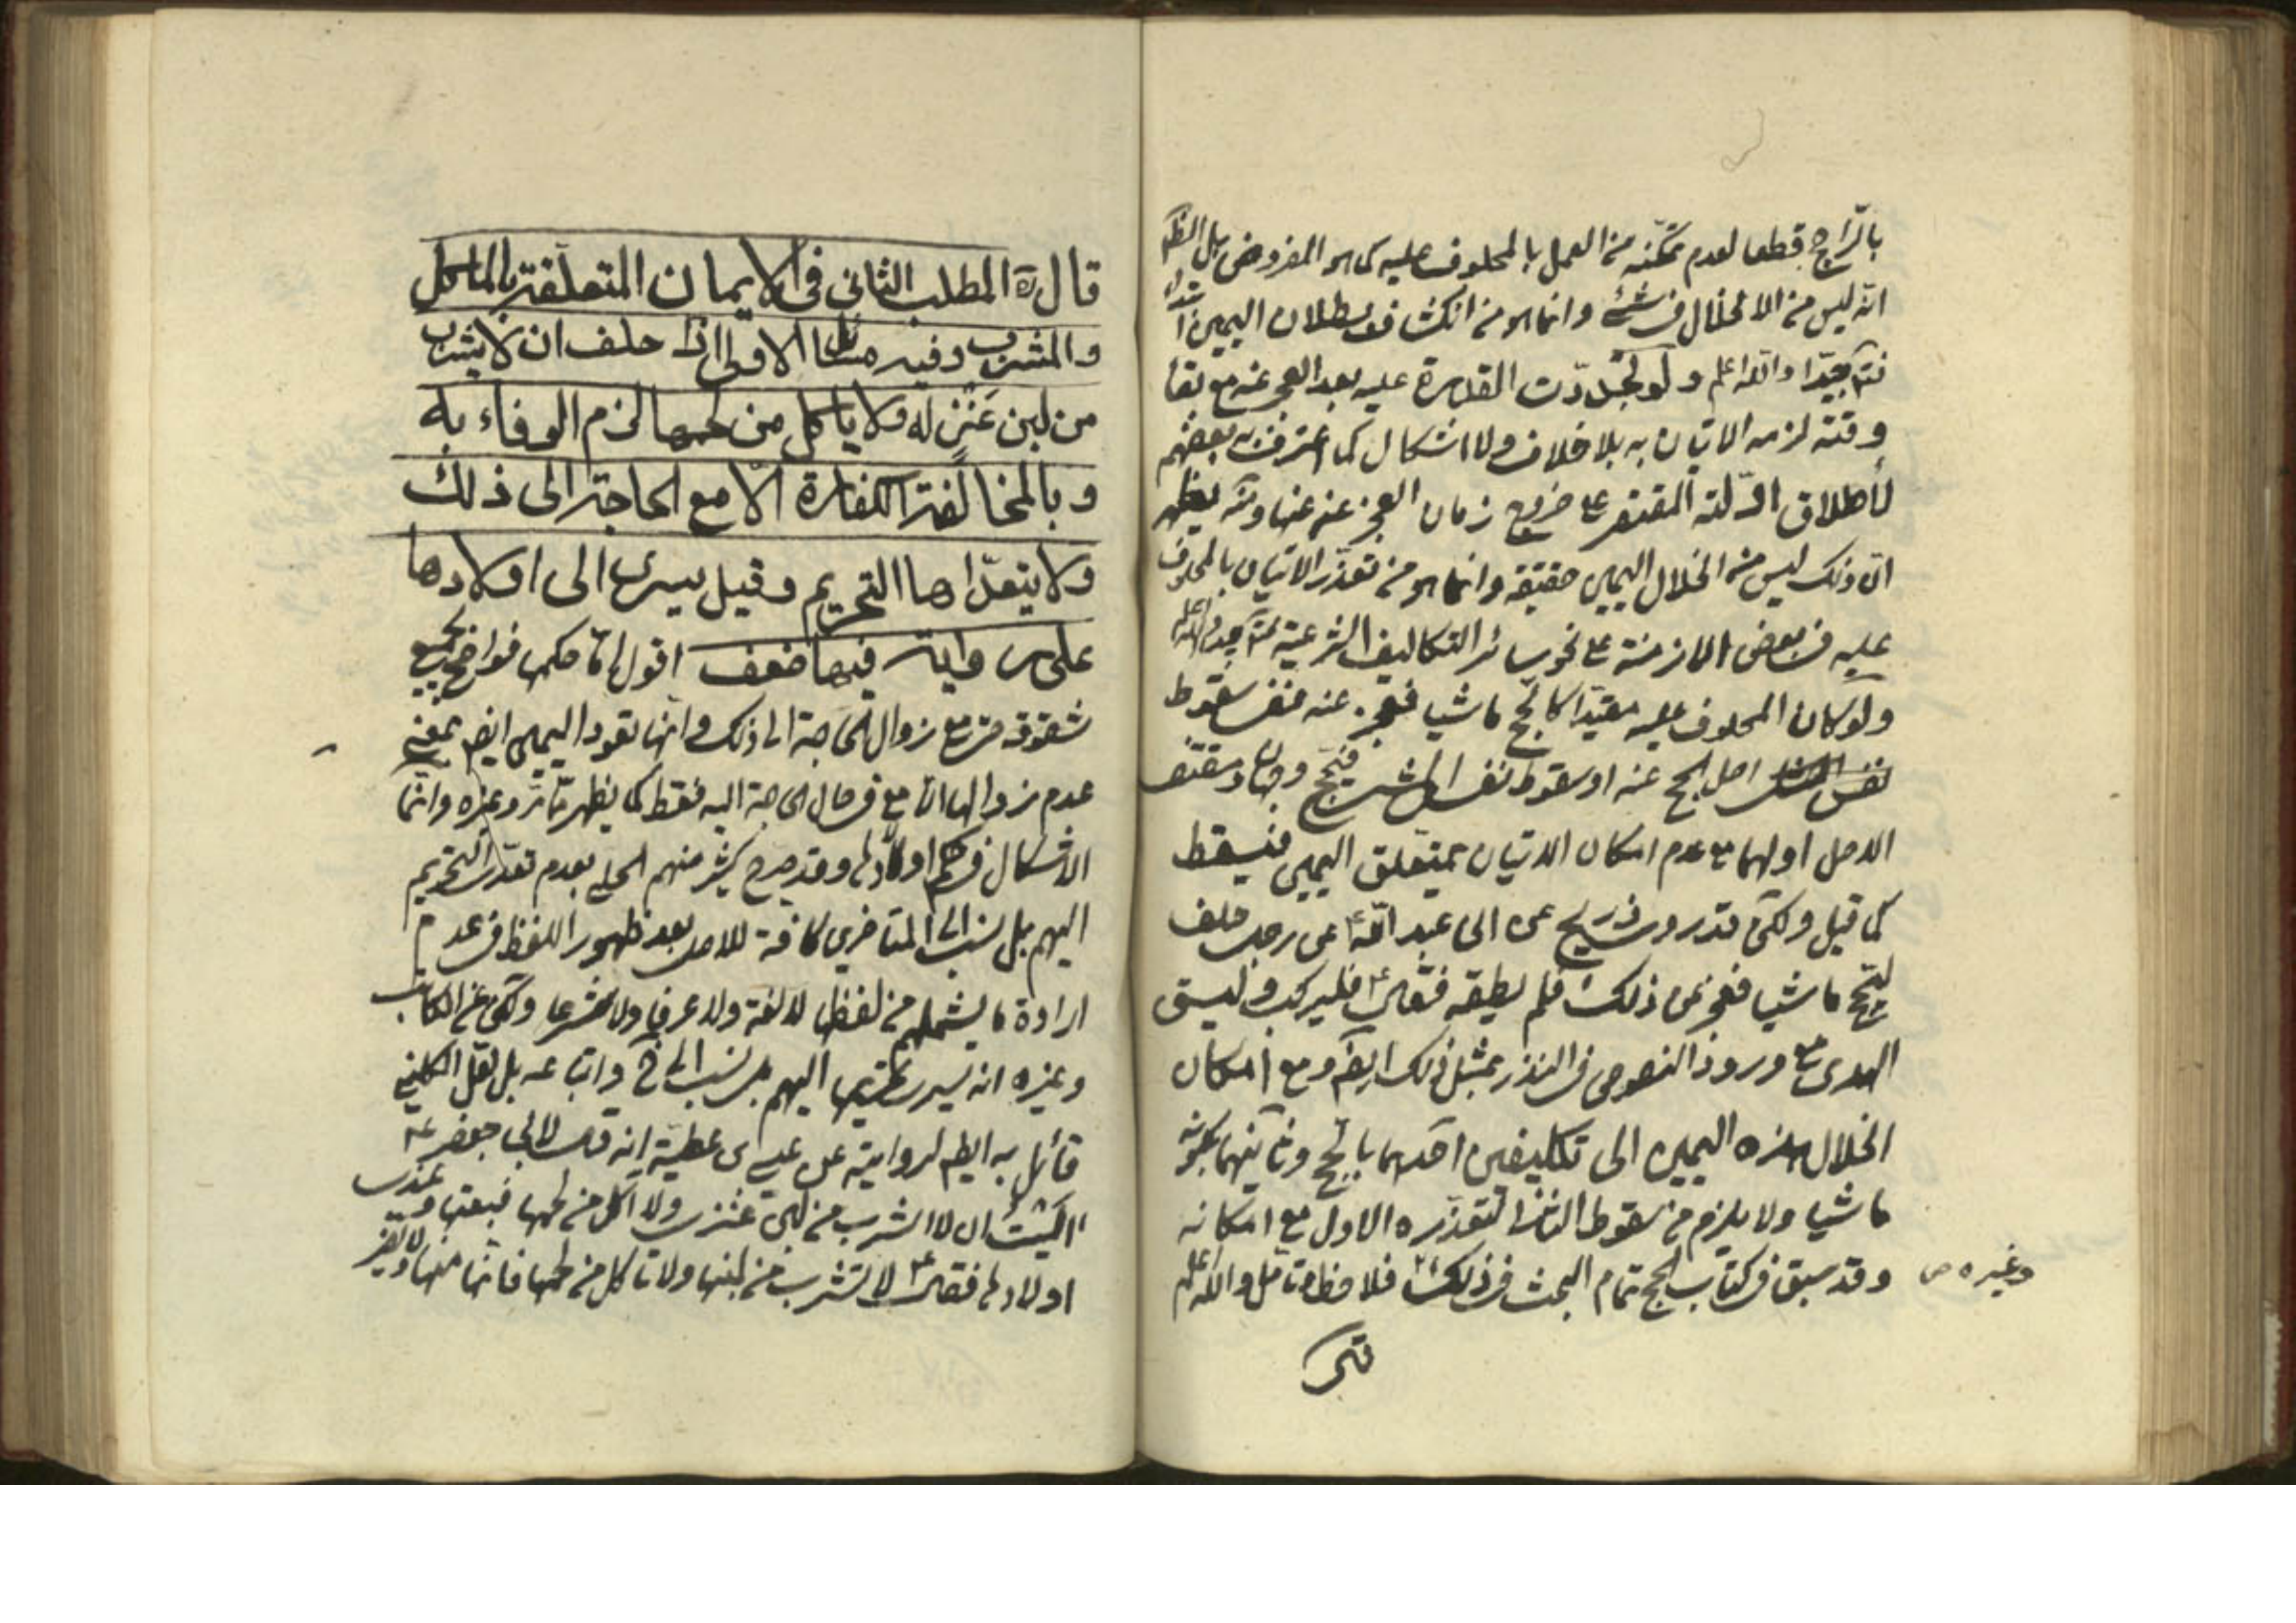 بالراجح قطعا لعدم تمكنه من العمل بالمحلوف عليه كما هو المفروض بل الظ
انه ليس من الاخلال في شئ وانما هو من انكشاف بطلان اليمين
جيدا والله اعلم ولو تجددت القدرة عليه بعد العجز عنه مع بقاء
وقته لزمه الاتيان به بلا خلاف ولا اشكال كما اعترف به بعضهم
لأطلاق الادلة المقتصر على خروج زمان العجز عنه عنها ومنه يظهر
ان ذلك ليس من انحلال اليمين حقيقة وانما هو من تعذر الاتيان بالمحلوف
عليه في بعض الازمنة على نحو سائر التكاليف الشرعية
ولو كان المحلوف عليه مقيدا كالحج ماشيا فعجز عنه ففى سقوط
اصل الحج عنه او سقوط نفس المشى فيحج وجهان ومقتضى
الاصل اولهما مع عدم امكان الاتيان بمتعلق اليمين فيسقط
كما قيل ولكن قد روى ذريح عن ابى عبد الله ع عن رجل حلف
ليحج ماشيا فعجز عن ذلك فلم يطقه فقال ع فليركب وليسق
الهدى مع ورود النصوص في النذر بمثل ذلك ايضا ومع امكان
انحلال هذه اليمين الى تكليفين احدهما بالحج وثانيهما بكونه
ماشيا ولا يلزم من سقوط الثانى لتعذره الاول مع امكانه
وقد سبق في كتاب الحج تمام البحث في ذلك فلاحظ وتأمل والله اعلم
وغيره ص
قال ره المطلب الثانى فى الايمان المتعلقة بالماكل
والمشرب وفيه مسائل الاولى اذا حلف ان لا يشرب
من لبن عنز له ولا ياكل من لحمها لزم الوفاء به
وبالمخالفة الكفارة الا مع الحاجة الى ذلك
ولا يتعداها التحريم وقيل يسرى الى اولادها
على رواية فيها ضعف اقول اما حكمها فواضح بجميع
شقوقه حتى مع زوال الحاجة الى ذلك وانها تعود اليمين ايضا بمعنى
عدم زوالها في حال الحاجة اليه فقط كما يظهر مما مر وغيره وانما
الاشكال في حكم اولادها وقد صرح كثير منهم الحلى بعدم تعدى التحريم
اليهم بل نسب الى المتاخرين كافة للاصل بعد ظهور اللفظ في عدم
ارادة ما يشملهم من لفظها لا لغة ولا عرفا ولا شرعا ولكن عن الكاتب
وغيره انه يسرى تحريمها اليهم بل نسب الى الشيخ واتباعه بل لعل الكلينى
قائل به ايضا لروايته عن عيسى بن عطية انه قال لابى جعفر ع
آليت ان لا اشرب من لبن عنزى ولا آكل من لحمها فبعتها وعندى
اولادها فقال ع لا تشرب من لبنها ولا تاكل من لحمها فانها منها